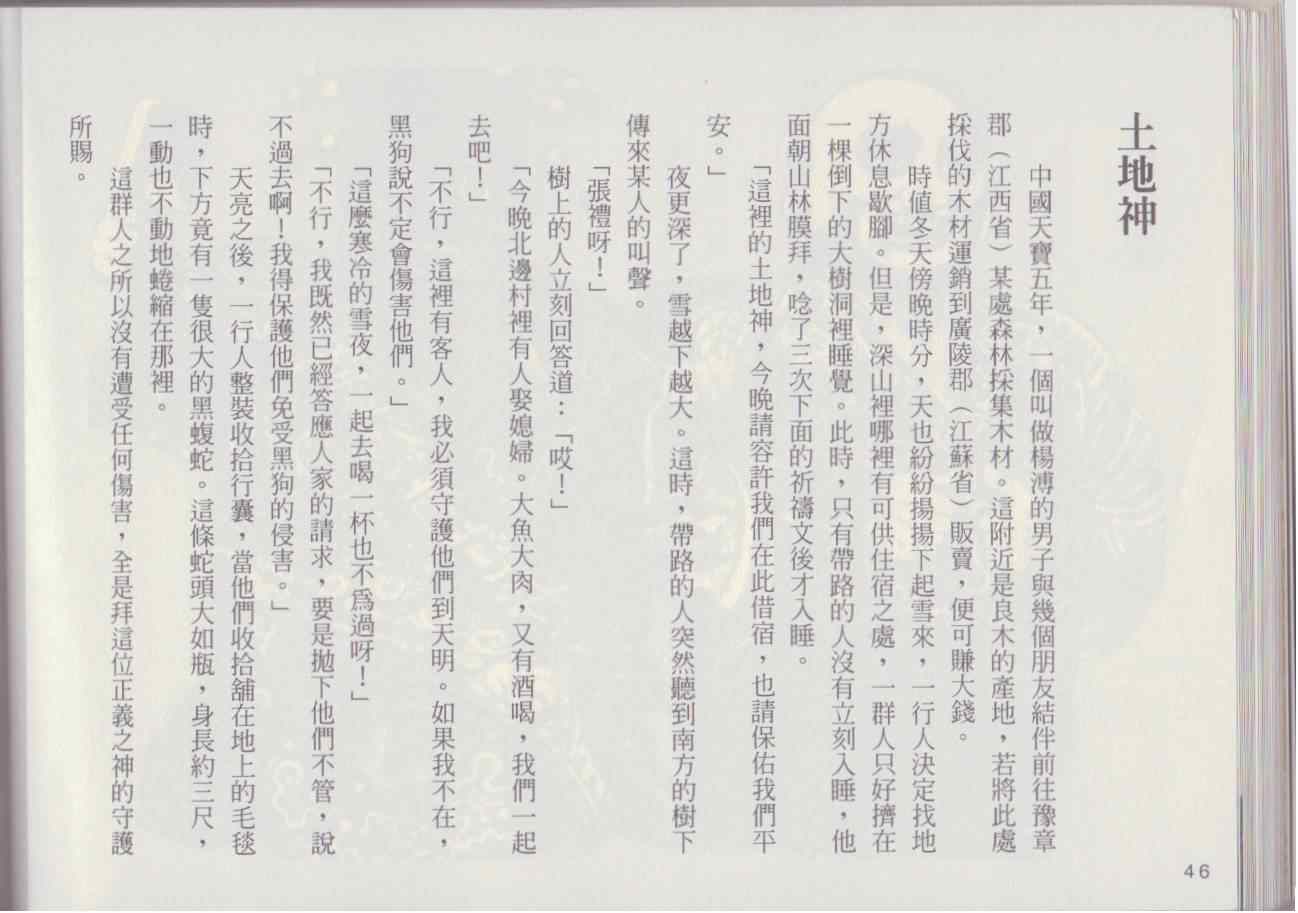 土地神
中國天寶五年，一個叫做楊溥的男子與幾個朋友結伴前往豫章
郡（江西省）某處森林採集木材。這附近是良木的產地，若將此處
採伐的木材運銷到廣陵郡（江蘇省）販賣，便可賺大錢。
時值冬天傍晚時分，天也紛紛揚揚下起雪來，一行人決定找地
方休息歇腳。但是，深山裡哪裡有可供住宿之處，一群人只好擠在
一棵倒下的大樹洞裡睡覺。此時，只有帶路的人沒有立刻入睡，他
面朝山林膜拜，唸了三次下面的祈禱文後才入睡。
「這裡的土地神，今晚請容許我們在此借宿，也請保佑我們平
安。」
夜更深了，雪越下越大。這時，帶路的人突然聽到南方的樹下
傳來某人的叫聲。
「張禮呀！」
樹上的人立刻回答道：「哎！」
「今晚北邊村裡有人娶媳婦。大魚大肉，又有酒喝，我們一起
去吧！」
「不行，這裡有客人，我必須守護他們到天明。如果我不在，
黑狗說不定會傷害他們。」
「這麼寒冷的雪夜，一起去喝一杯也不爲過呀！」
「不行，我既然已經答應人家的請求，要是拋下他們不管，說
不過去啊！我得保護他們免受黑狗的侵害。」
天亮之後，一行人整裝收拾行囊，當他們收拾舖在地上的毛毯
時，下方竟有一隻很大的黑蝮蛇。這條蛇頭大如瓶，身長約三尺，
一動也不動地蜷縮在那裡。
這群人之所以沒有遭受任何傷害，全是拜這位正義之神的守護
所賜。
46